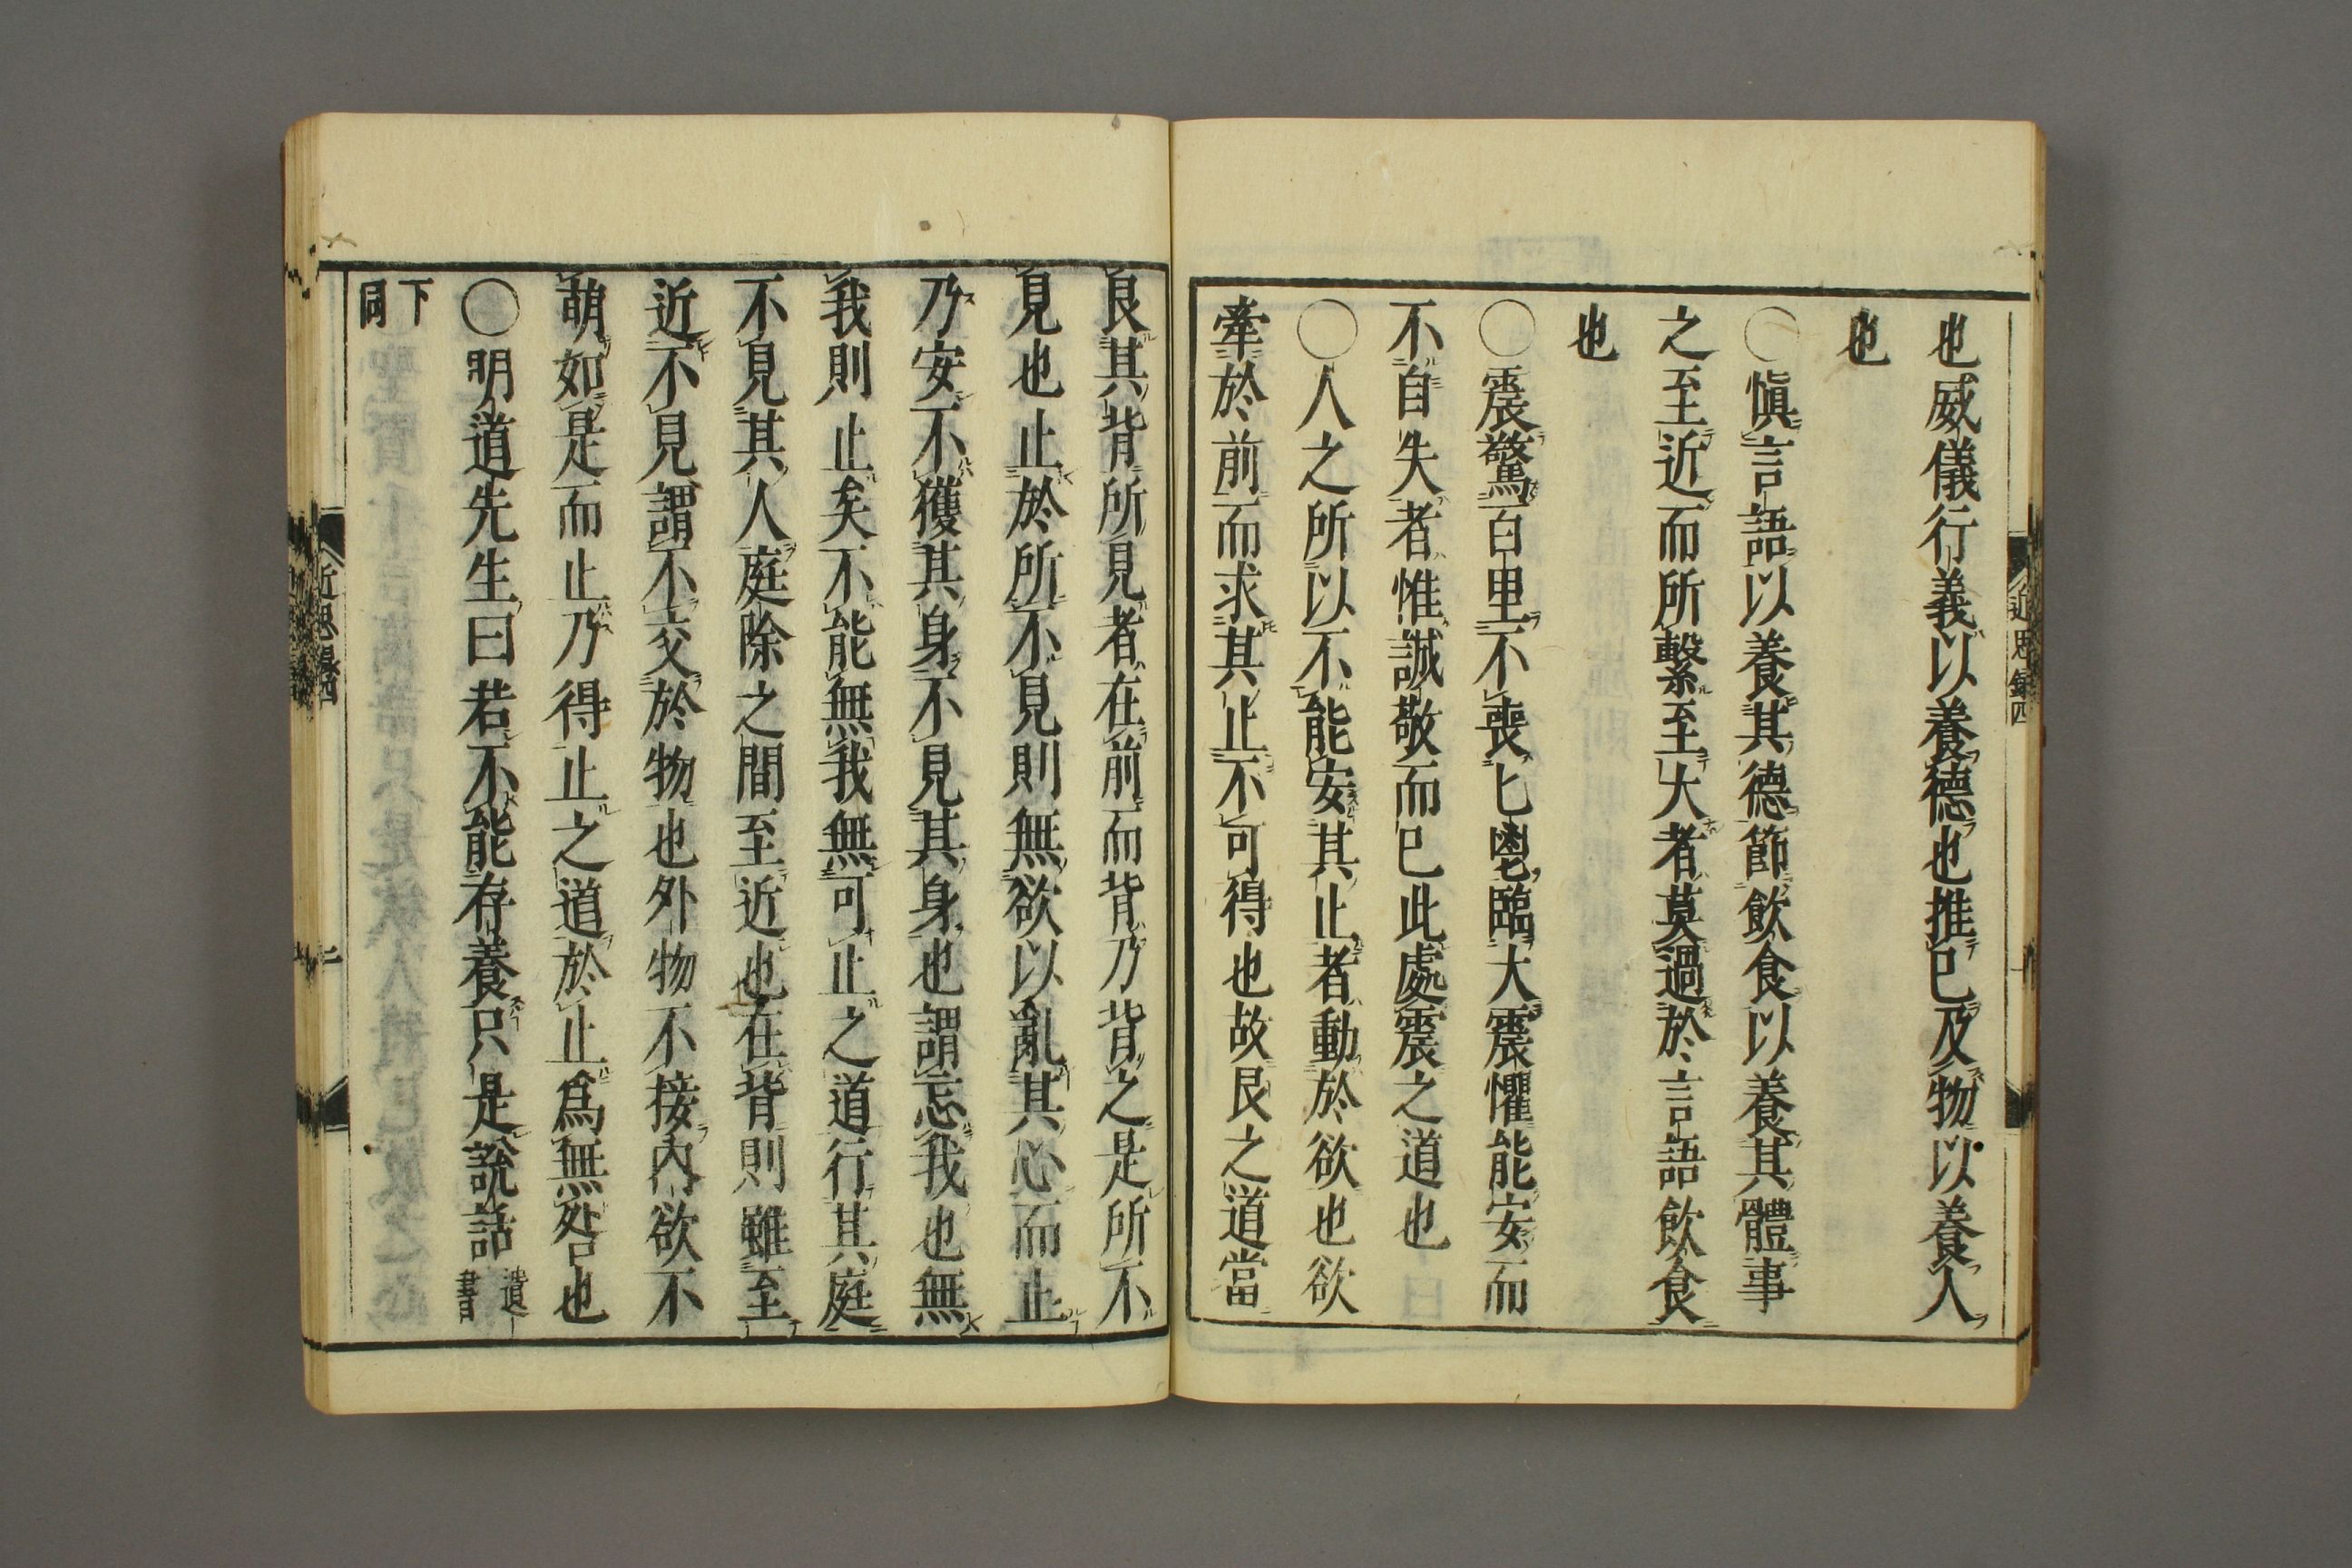 也威儀行義以養德也推已及物以養人
也
〇愼言語以養其德節飲食以養其體事
之至近而所繫至大者莫過於言語飲食
也
〇震驚百里不喪匕鬯臨大震懼能安而
不自失者惟誠敬而已此處震之道也
〇人之所以不能安其止者動於欲也欲
牽於前而求其止不可得也故艮之道當
艮其背所見者在前而背乃背之是所不
見也止於所不見則無欲以亂其心而止
乃安不獲其身不見其身也謂忘我也無
我則止矣不能無我無可止之道行其庭
不見其人庭除之間至近也在背則雖至
近不見謂不交於物也外物不接內欲不
萌如是而止乃得止之道於止爲無咎也
〇明道先生曰若不能存養只是說話遺書
下同
近思録四
近思録四
二